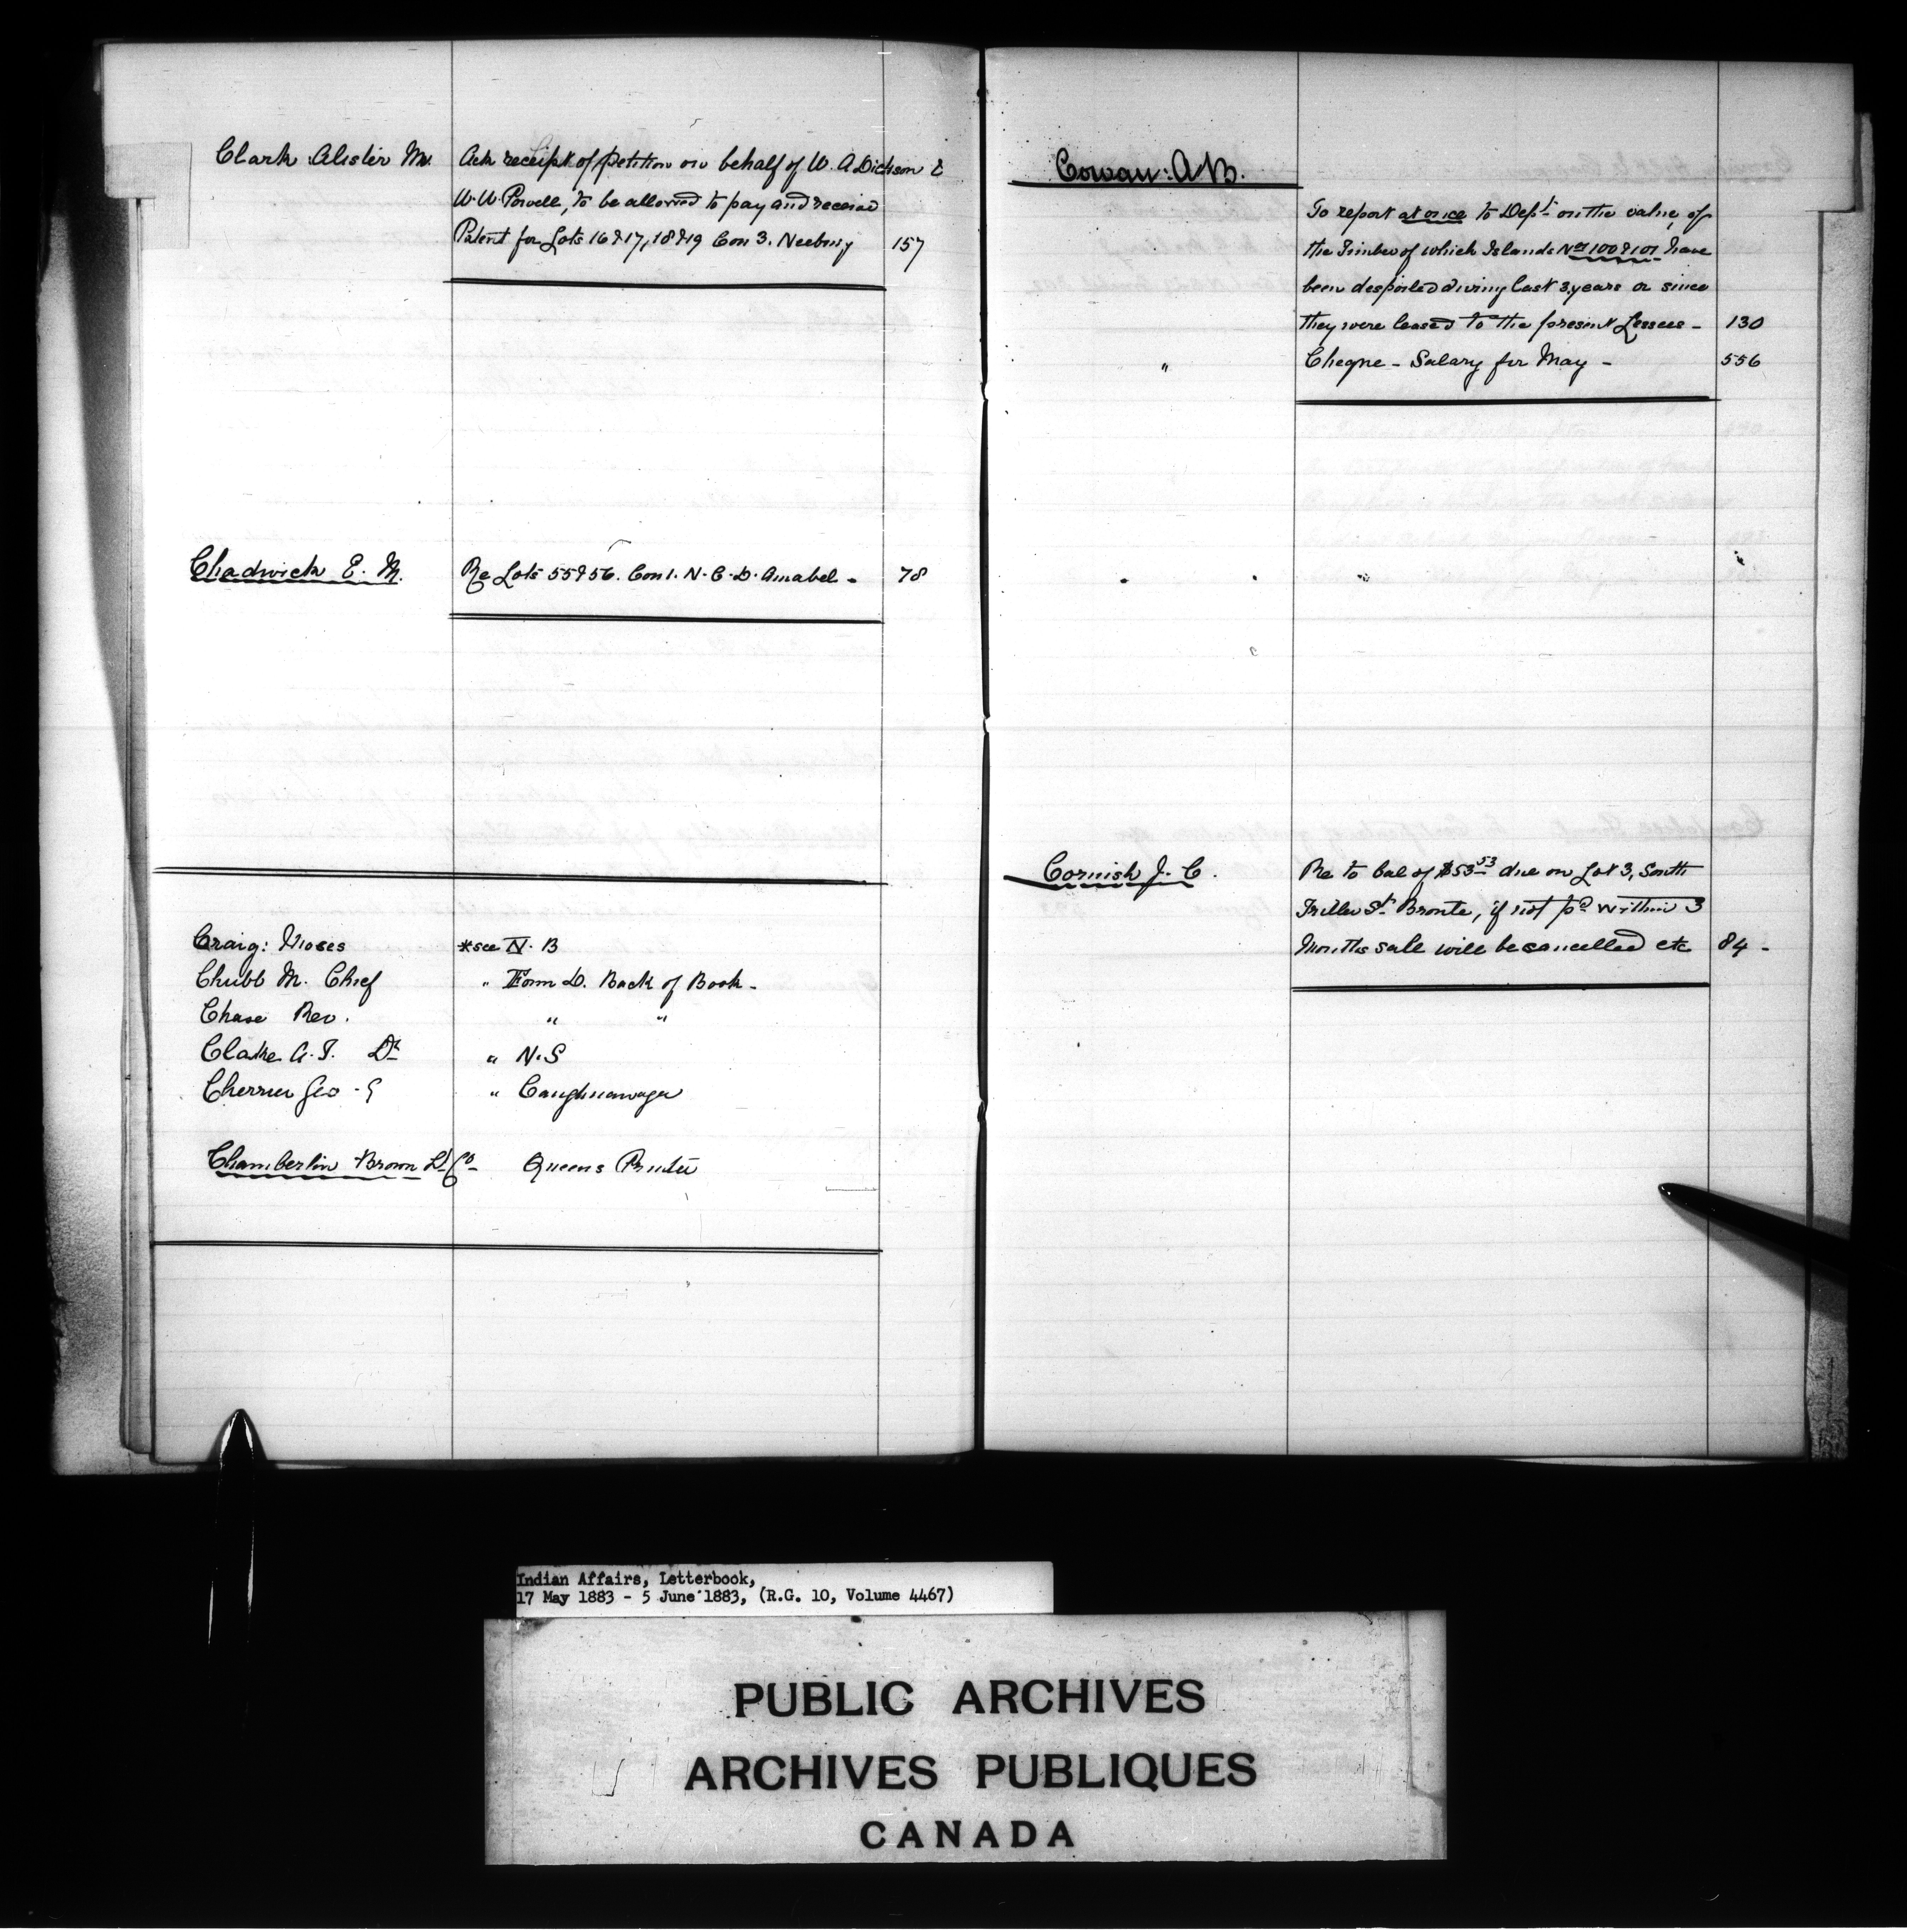 Clark Alister M. Ack receipt of petition on behalf of W. A Dickson &
W. W. Powell, to be allowed to pay and receive
Patent for Lots 16 & 17, 18 & 19 Con 3. Neebing 157
Chadwick E. M. Re Lots 55 & 56. Con 1. N. C. D. Amabel - 78
Craig: Moses *see N. B
Chubb M. Chief " Form D. Back of Book -
Chase Rev. " "
Clarke A. J. Dr " N. S
Cherrier Geo - E " Caughnawaga
Chamberlin Brown L. Co Queens Printer
Cowan: A B.
To report at once to Dept on the value, of
the Timber of which Islands Nos 100 & 101 have
been despoiled during last 3 years or since
they were leased to the present Lessees - 130
" Cheque - Salary for May - 556
Cornish J. C. Re to bal of $53 53 due on Lot 3, South
Triller St. Bronte, if not pd within 3
Months sale will be cancelled etc 84 -
Indian Affairs, Letterbook,
17 May 1883 - 5 June 1883, (R.G. 10, Volume 4467)
PUBLIC ARCHIVES
ARCHIVES PUBLIQUES
CANADA